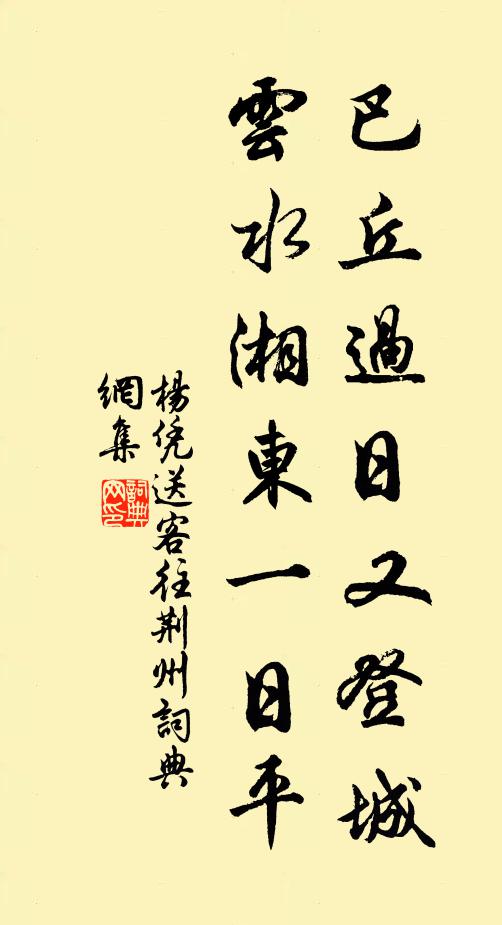 巴丘過日又登城
雲水湘東一日平
楊凭送客往荆州詞典
網集
詞典
网印